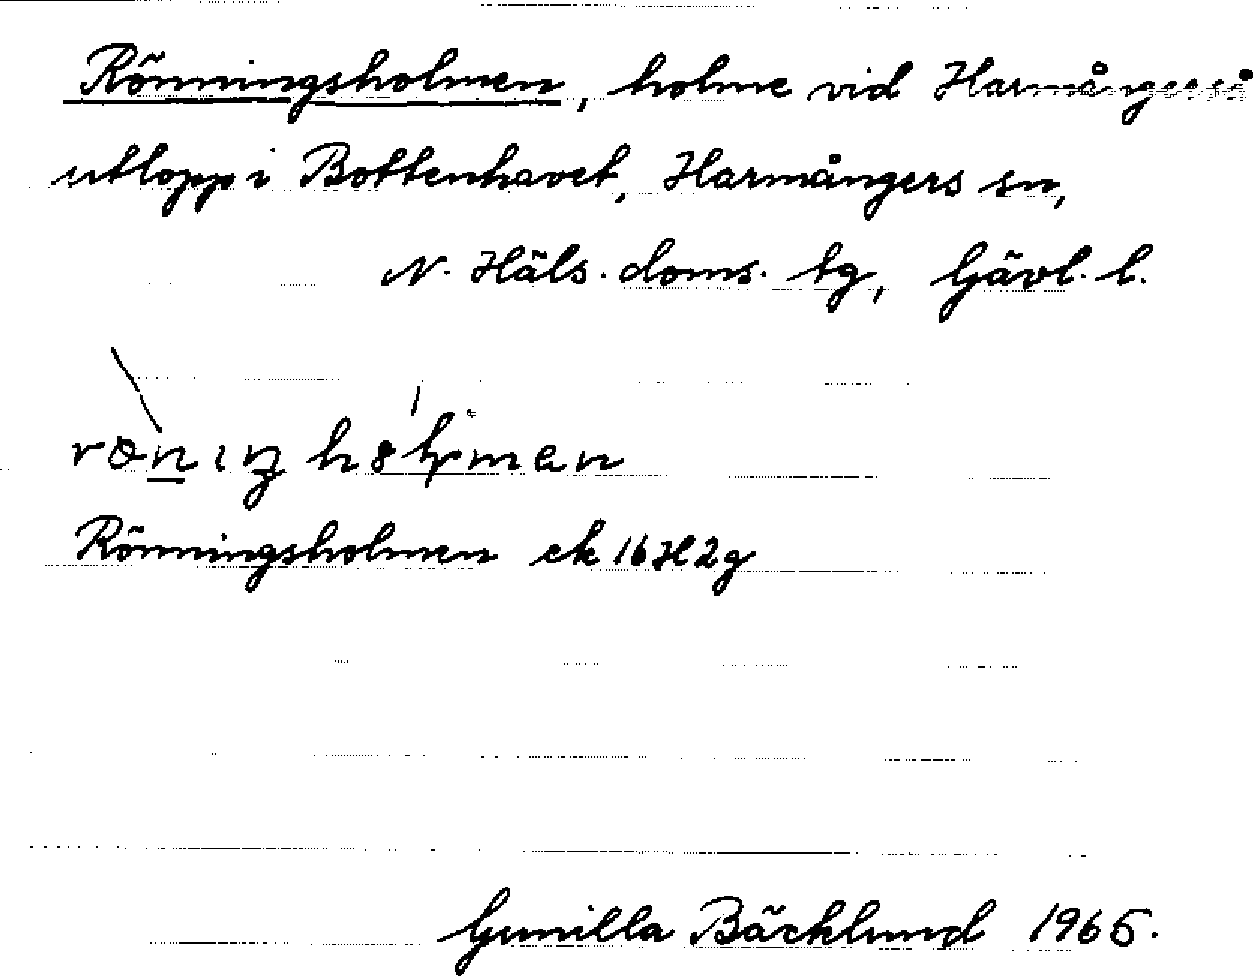 Rönningsholmen, holme vid Harmångerså
utlopp i Bottenhavet, Harmångers sn,
N. Häls. doms. tg, Gävl. l.
Rönningsholmen ek 16H2g
Gunilla Bäcklund 1965.